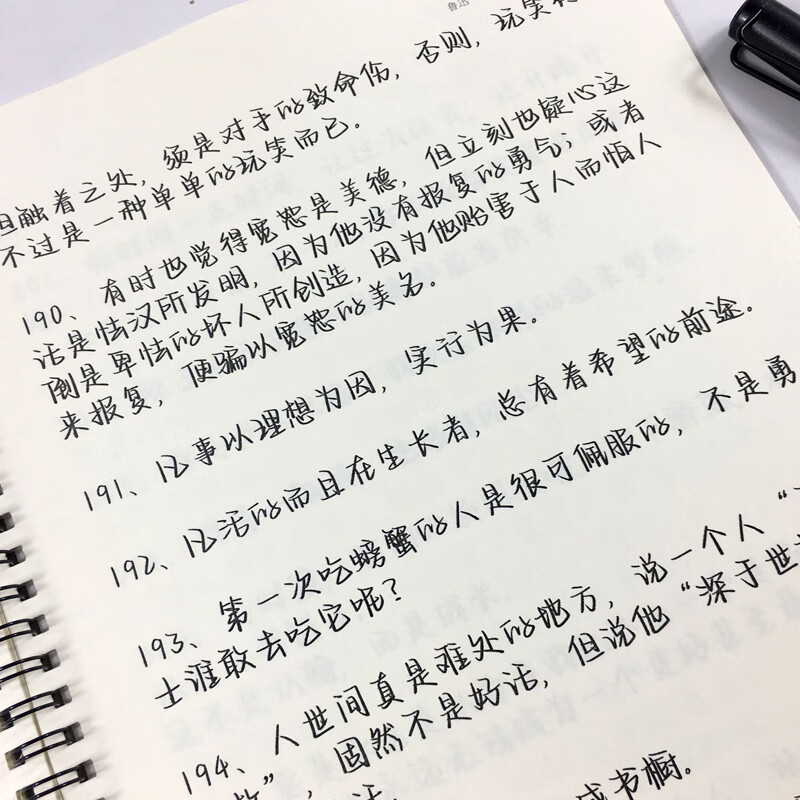 鲁迅
但触着之处，须是对手的致命伤，否则，玩笑
不过是一种单单的玩笑而已。
190、有时也觉得宽恕是美德，但立刻也疑心这
话是怯汉所发明，因为他没有报复的勇气；或者
倒是卑怯的坏人所创造，因为他贻害于人而怕人
来报复，便骗以宽恕的美名。
191、凡事以理想为因，实行为果。
192、凡活的而且在生长者，总有着希望的前途。
193、第一次吃螃蟹的人是很可佩服的，不是勇
士谁敢去吃它呢？
194、人世间真是难处的地方，说一个人“
”，固然不是好话，但说他“深于世
话
成书橱。